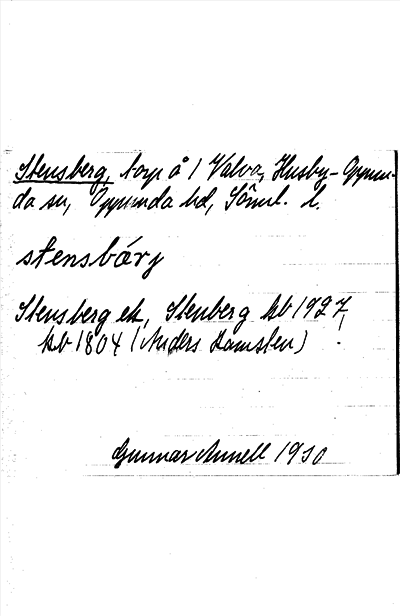 Stensberg, torp å 1 Valva, Husby-Oppun-
da sn, Oppunda hd, Söml. l.
stensbárj
Stensberg ek, Stenberg kb 1727,
kb 1804 (Anders Lamsten)
Gunnar Annell 1930